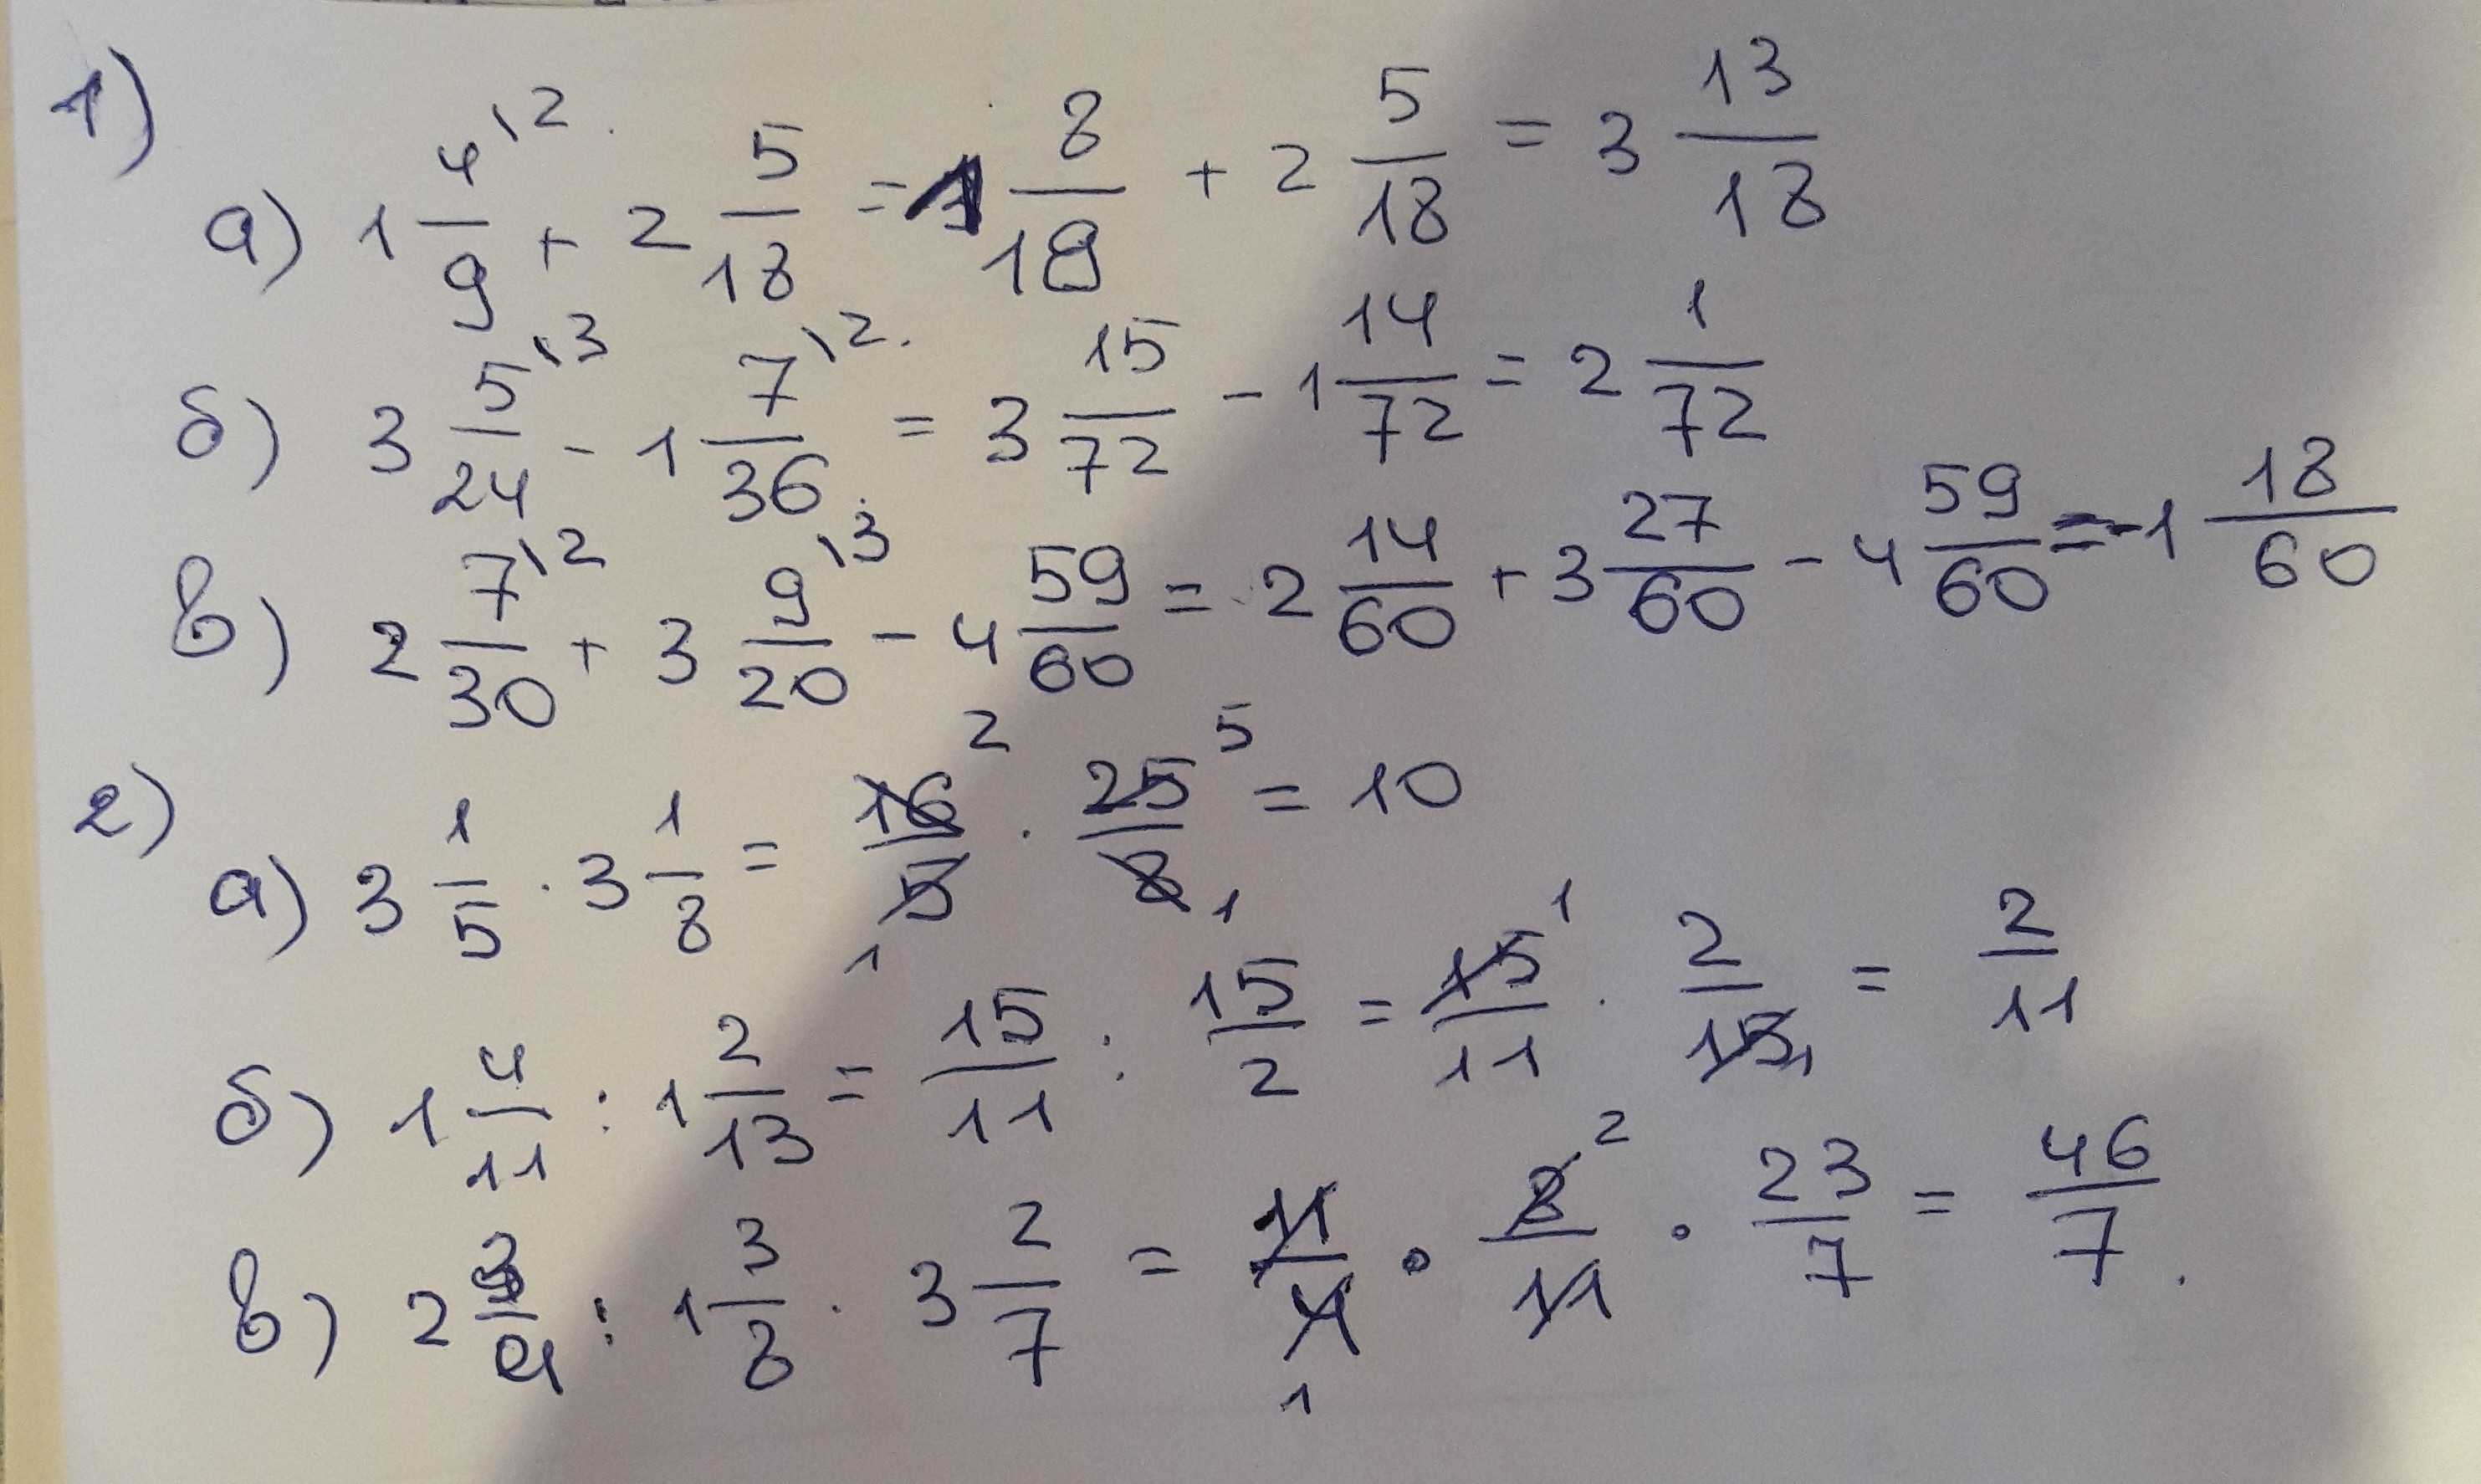 1)
а) 1 4/9 \2 + 2 5/18 = 1 8/18 + 2 5/18 = 3 13/18
б) 3 5/24 \3 - 1 7/36 \2 = 3 15/72 - 1 14/72 = 2 1/72
в) 2 7/30 \2 + 3 9/20 \3 - 4 59/60 = 2 14/60 + 3 27/60 - 4 59/60 = -1 18/60
2)
а) 3 1/5 · 3 1/8 = 16 2/5 1 · 25 5/8 1 = 10
б) 1 4/11 : 1 2/13 = 15/11 : 15/2 = 15 1/11 · 2/15 1 = 2/11
в) 2 3/4 : 1 3/8 · 3 2/7 = 11/4 1 · 8 2/11 · 23/7 = 46/7.